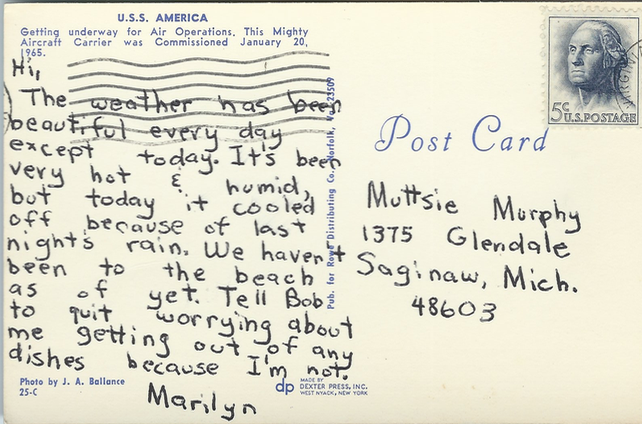 U.S.S. AMERICA
Getting underway for Air Operations. This Mighty
Aircraft Carrier was Commissioned January 20,
1965.
Hi,
The weather has been
beautiful every day
except today. It's been
very hot & humid,
but today it cooled
off because of last
night's rain. We haven't
been to the beach
as of yet. Tell Bob
to quit worrying about
me getting out of any
dishes because I'm not.
Marilyn
Photo by J. A. Ballance
25-C
Pub. for Rowe Distributing Co., Norfolk, Va. 23509
dp
MADE BY
DEXTER PRESS, INC.
WEST NYACK, NEW YORK
5c
U.S. POSTAGE
VIRGINIA
Post Card
Muttsie Murphy
1375 Glendale
Saginaw, Mich.
48603